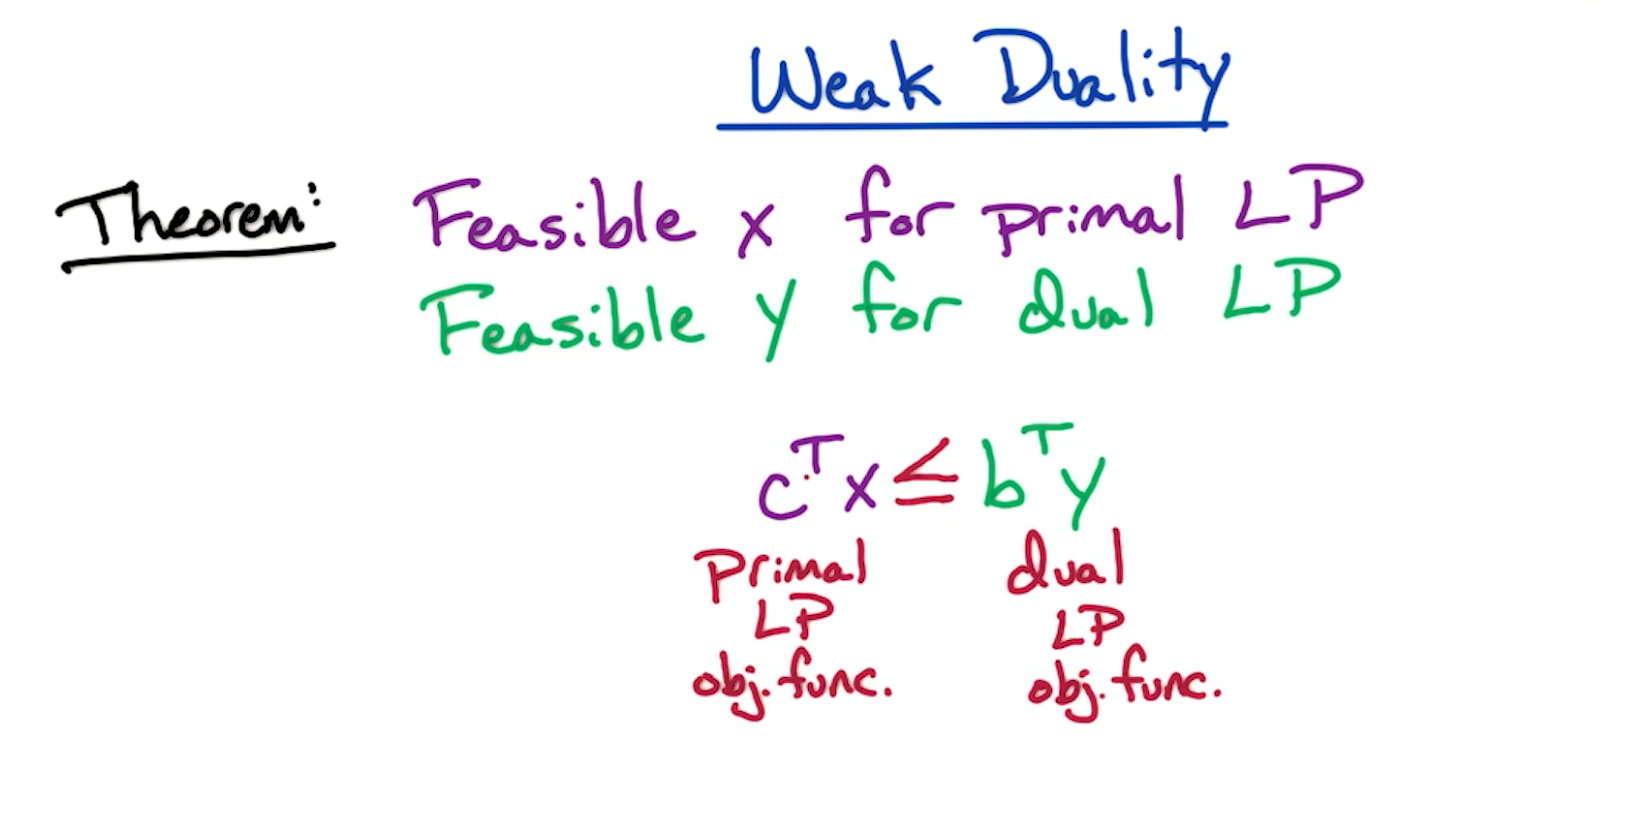 Weak Duality
Theorem: Feasible x for primal LP
Feasible y for dual LP
cᵀx ≤ bᵀy
Primal dual
LP LP
obj. func. obj. func.